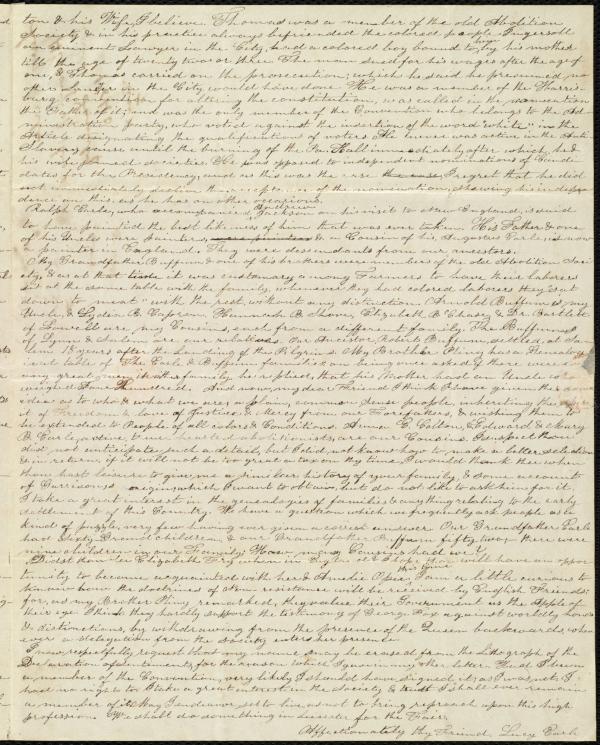 ton & his Wife, I believe. Thomas was a member of the old Abolition
Society & in his practice always befriended the colored people. Ingersoll
an eminent Lawyer in the City, had a colored boy bound to him, by his mother
till the age of twenty two or three. The man sued for his wages after the age of
one, & Thomas carried on the prosecution; which he said he presumed no
other Lawyer in the City would have done. He was a member of the Harris-
burg convention for altering the constitution, was called in the convention
the Father of it; and was the only member of the Convention who belongs to the Ad-
ministration party, who voted against the insertion of the word "white" in the
Article designating the qualifications of voters. He never was active in the Anti-
Slavery cause until the burning of the Pa. Hall immediately after which, he &
his wife joined societies. He was opposed to independent nominations of Candi-
dates for the Presidency; and as this was the case I regret that he did
not immediately decline the acceptance of the nomination, shewing his indepen-
dence on this, as he has on other occasions.
Ralph Earle, who accompanied Andrew Jackson on his visit to New England, is said
to have painted the best likeness of him that was ever taken. His Father & one
of his Uncles were painters, & a Cousin of his, Augustus Earle, is now
one in England. They were descendants from our ancestors.
My Grandfather Buffum & one of his brothers were members of the old Abolition Soci-
ety, & as at that time it was customary among Farmers to have their laborers
sit at the same table with the family, whenever they had colored laborers they "sat
down to meat" with the rest, without any distinction. Arnold Buffum is my
Uncle, & Lydia B. Capron, Hannah B. Shove, Elizabeth B. Chase, & Dr. Bartlett
of Lowell are my Cousins, each from a different family. The Buffums
of Lynn & Salem are our relatives. Our Ancestor, Robert Buffum, settled at Sa-
lem 15 years after the Landing of the Pilgrims. My Brother Pliny has a Genealog-
ical table of The Earle & Buffum families & on being once asked if there were
any great men in the family he replied, that his Mother had an Uncle who
weighed Four Hundred. And now, my dear Friend I think I have given thee some
idea as to who & what we are; a plain, common sense people, inheriting the spir-
it of Freedom & love of Justice & Mercy from our Forefathers, & wishing them to
be extended to People of all colors & Conditions. Anna E. Colton, Edward & Mary
B. Earle, active, true hearted abolitionists, are our Cousins. I suspect thou
didst not anticipate such a detail, but I did not know how to make a better selection
& in return, if it will not be too great a tax on thy time, I would thank thee when
thou hast leisure to give me a similar history of your family, & some account
of Garrison's origin, which I want to obtain, but do not like to ask him for it.
I take a great interest in the genealogies of families & any thing relating to the early
settlement of this Country. We have a question which we frequently ask people as a
kind of puzzle, very few having ever given a correct answer. Our Grandfather Earle
had sixty Grand children, & our Grandfather Buffum fifty two, there were
nine children in our Family; How many Cousins had we?
Didst thou see Elizabeth Fry when in England? I hope thou will have an oppor-
tunity to become acquainted with her & Amelia Opie. I am a little curious to
know how the doctrines of Non resistance will be received by English Friends:
for, as my Brother Pliny remarked, they value their Government as the Apple of
their eye. I think they hardly support the testimony of George Fox against worldly honors
& distinctions, by withdrawing from the presence of the Queen backwards, when-
ever a delegation from the Society enters her presence.
I now respectfully request that my name may be erased from the Lithograph of the
Declaration of Sentiments, for the reason which I gave in my other letter. Had I been
a member of the Convention, very likely I should have signed it; as I was not, I
had no right to. I take a great interest in the Society & trust I shall ever remain
a member of it. May I endeavor so to live as not to bring reproach upon this high
profession. We shall do something in season for the Fair.
Affectionately thy Friend, Lucy Earle